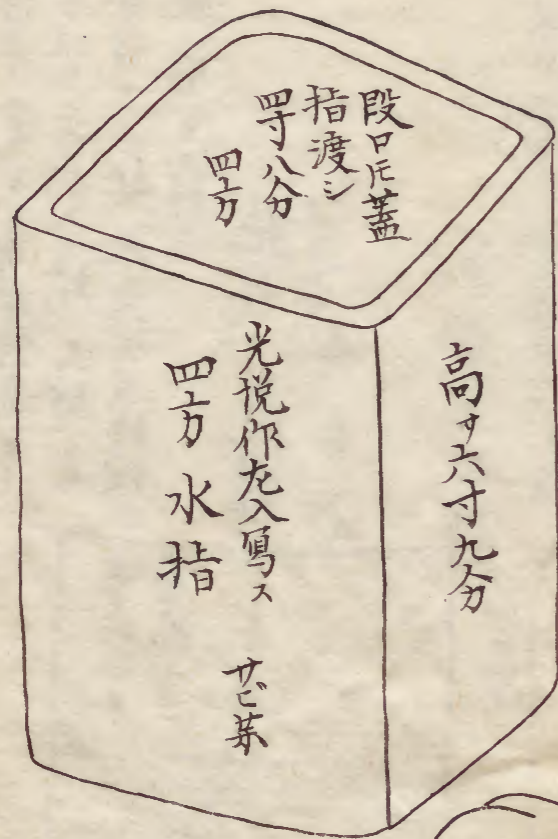 段口圧蓋
指渡シ
四寸八分
四方
高サ六寸九分
光悦作左入写ス
四方水指
サビ茶